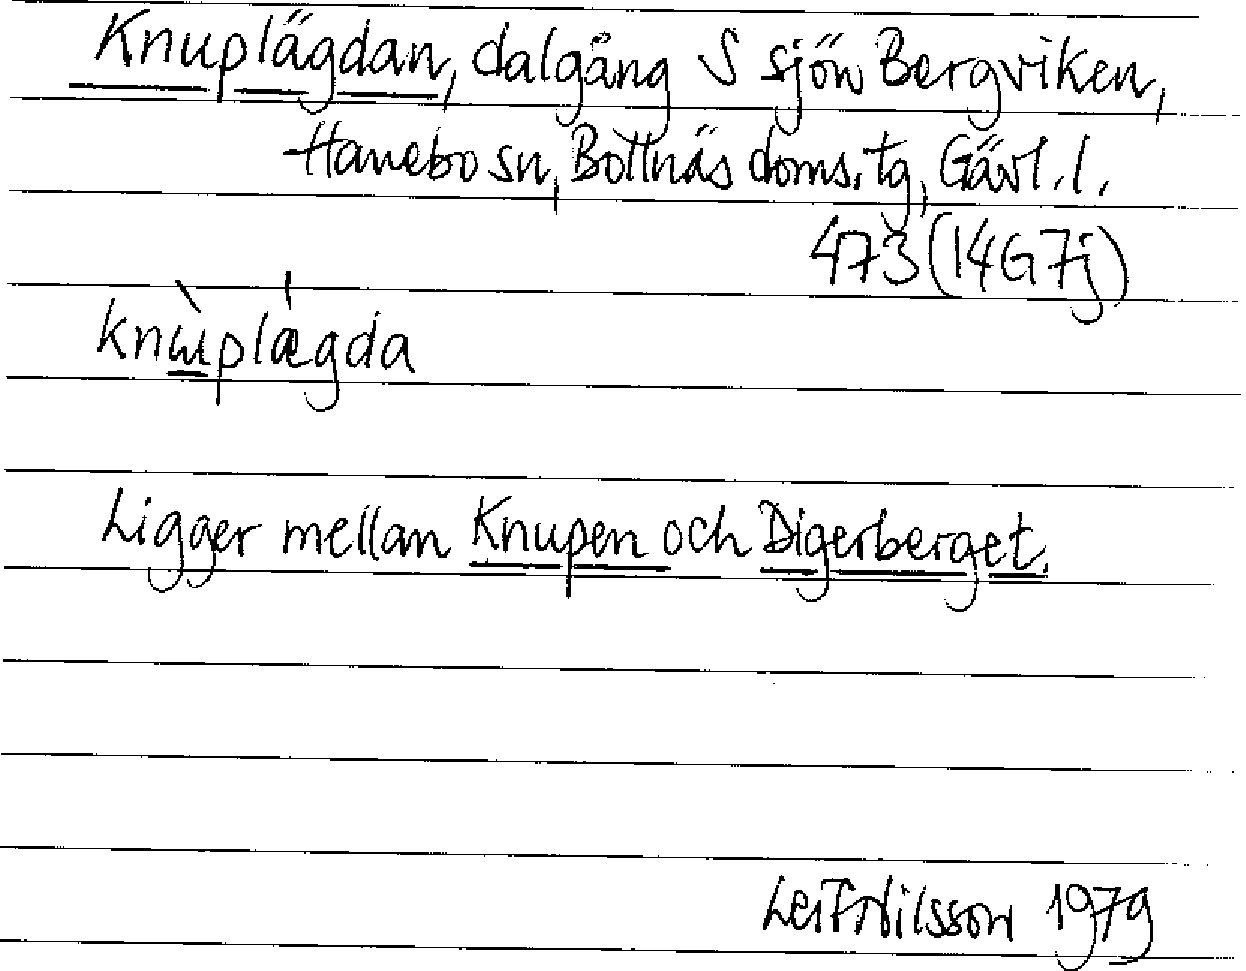 Knuplägdan, dalgång S sjön Bergviken,
Hanebo sn, Bollnäs doms.tg, Gävl. l.
473 (14G7j)
knɯ̀plǽgda
Ligger mellan Knupen och Digerberget.
Leif Nilsson 1979